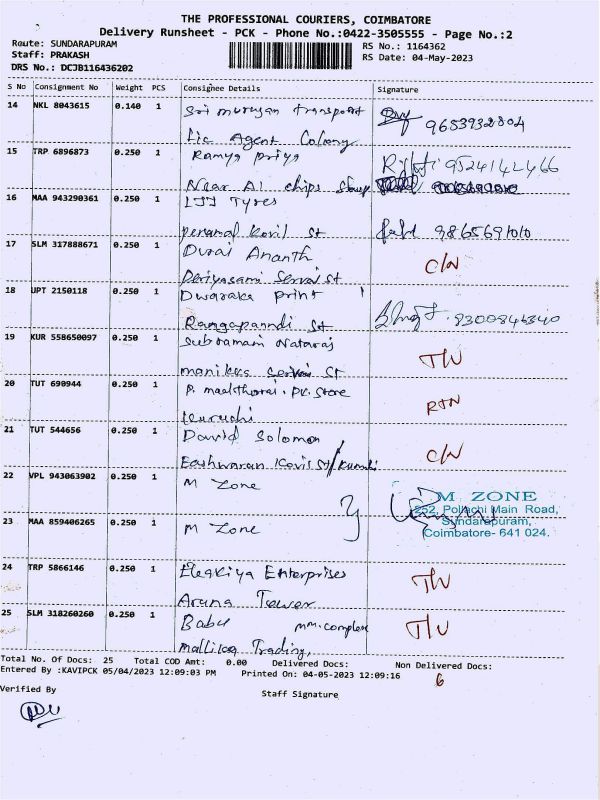 THE PROFESSIONAL COURIERS, COIMBATORE
Delivery Runsheet - PCK - Phone No.:0422-3505555 - Page No.:2
Route: SUNDARAPURAM RS No.: 1164362
Staff: PRAKASH RS Date: 04-May-2023
DRS No.: DCJB116436202
S No Consignment No Weight PCS Consignee Details Signature
14 NKL 8043615 0.140 1 Sri murugan transport
9653932804
Lic Agent Colony
15 TRP 6896873 0.250 1 Ramya priya
9524142466
Near A1 chips shop
16 MAA 943290361 0.250 1 LJJ Tyres
perumal Kovil st 9865691010
17 SLM 317888671 0.250 1 Durai Ananth
C/N
Periyasami Servai st
18 UPT 2150118 0.250 1 Dwaraka print
Rangapanndi st 9300846340
19 KUR 558650097 0.250 1 Subramani Nataraj
T/N
manikka servai st
20 TUT 690944 0.250 1 P. maalthorai. PK. store
RTN
Kuruchi
21 TUT 544656 0.250 1 David Solomon
C/N
Eashwaran Kovil st/
22 VPL 943063902 0.250 1 M Zone
M ZONE
252, Pollachi Main Road,
Sundarapuram,
Coimbatore- 641 024.
23 MAA 859406265 0.250 1 M Zone
24 TRP 5866146 0.250 1 Elakiya Enterprises
T/N
Aruna Tower
25 SLM 318260260 0.250 1 Babu mm. complex
T/N
Trading,
Total No. Of Docs: 25 Total COD Amt: 0.00 Delivered Docs: Non Delivered Docs:
Entered By :KAVIPCK 05/04/2023 12:09:03 PM Printed On: 04-05-2023 12:09:16 6
Verified By Staff Signature